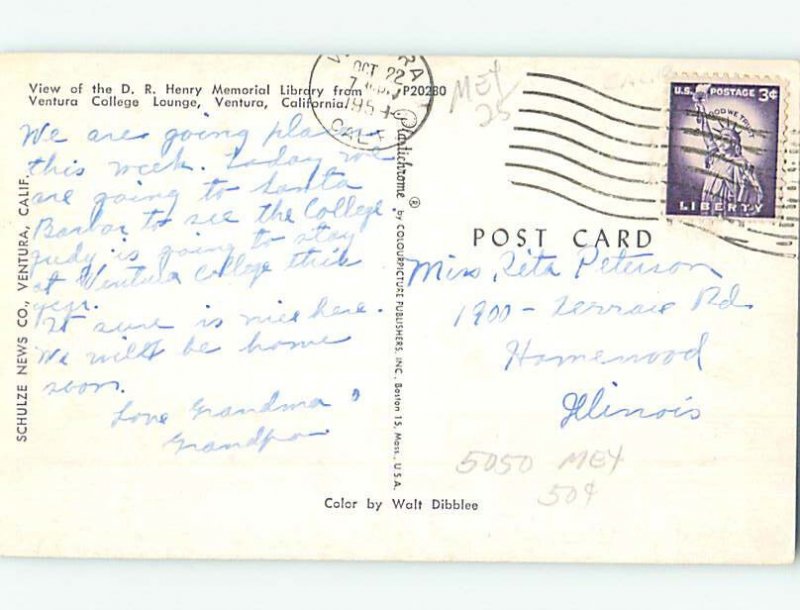 View of the D. R. Henry Memorial Library from
Ventura College Lounge, Ventura, California
P20280
OCT 22
CALIF
MEX
25
U.S. POSTAGE 3¢
IN GOD WE TRUST
LIBERTY
We are going places
this week. Today we
are going to Santa
Barbar to see the College.
Judy is going to stay
at Ventura College this
year.
It sure is nice here.
We will be home
soon.
Love Grandma &
Grandpa
SCHULZE NEWS CO., VENTURA, CALIF.
Plastichrome ® by COLOURPICTURE PUBLISHERS, INC. Boston 15, Mass., U.S.A.
POST CARD
Miss Rita Peterson
1900 - Terrace Rd
Homewood
Illinois
5050 MEX
50¢
Color by Walt Dibblee